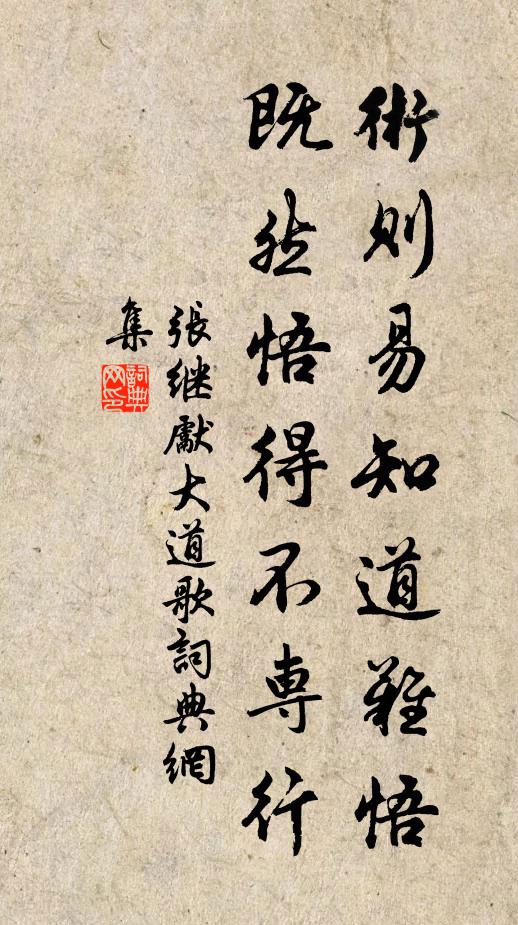 術则易知道難悟
既然悟得不専行
張继獻大道歌詞典網
集
詞典
网印